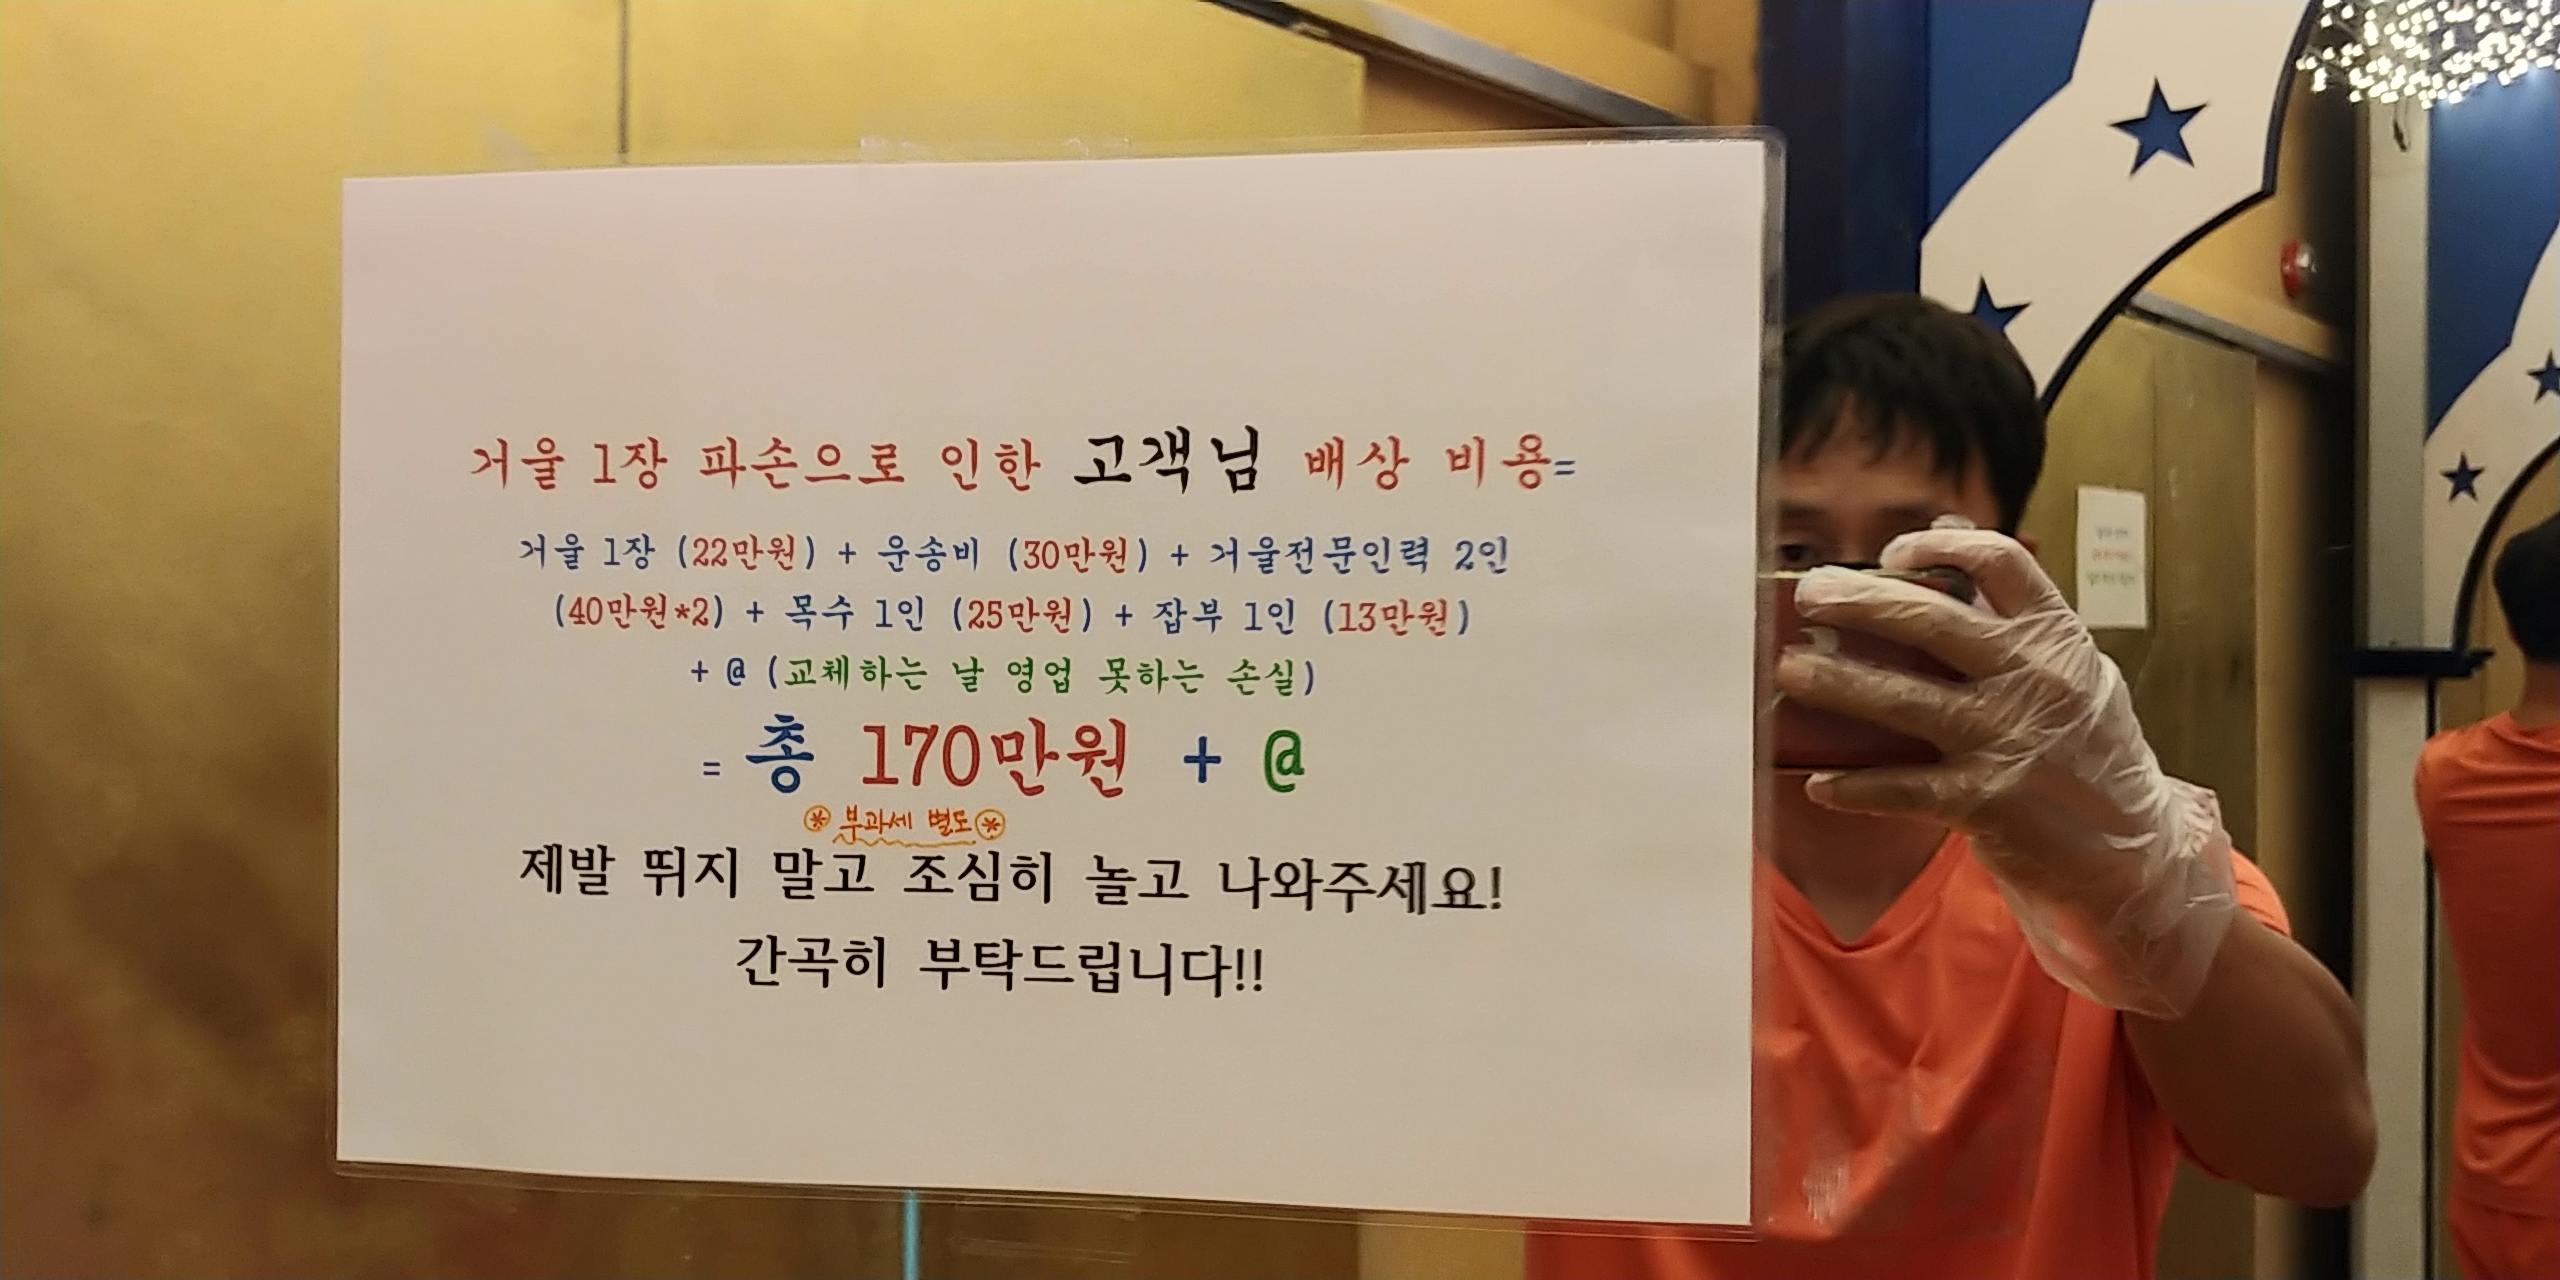 거울 1장 파손으로 인한 고객님 배상 비용=
거울 1장 (22만원) + 운송비 (30만원) + 거울전문인력 2인
(40만원*2) + 목수 1인 (25만원) + 잡부 1인 (13만원)
+ @ (교체하는 날 영업 못하는 손실)
= 총 170만원 + @
부과세 별도
제발 뛰지 말고 조심히 놀고 나와주세요!
간곡히 부탁드립니다!!